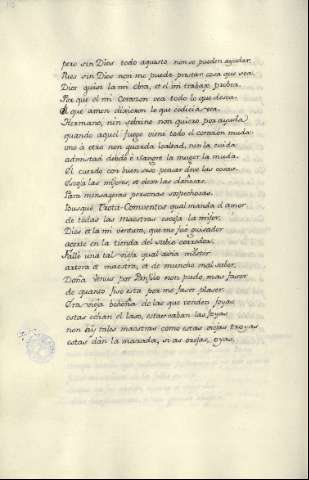 pero sin Dios todo aquesto non se pueden ayudar.
Pues sin Dios non me puede prestar cosa que sea.
Dios guise la mi obra, et el mi trabajo provea.
Por que el mi Corazon vea todo lo que desea.
El que amen dixieron lo que codicia vea.
Hermano, nin sobrino non quiero por ayuda
quando aquel fuego viene todo el corazon muda.
uno à otro non guarda lealtad, nin la cuida
admistad debdo è sangre la muger la muda.
El cuerdo con buen seso pensar deve las cosas.
Escoja las mijores, et dexe las dañosas.
Para mensageras personas sospechosas.
Busqué Trota-Conventos qual manda el amor
de todas las maestras escoja la mijor.
Dios et la mi ventura, que me fue guiador
acerté en la tienda del sabio corredor.
Fallé una tal vieja qual avia mester
artera et maestra, et de mucho mal saber.
Doña Venus por Panfilo non pudo mas facer
de quanto fiso esta por me facer placer.
Era vieja buhona de las que venden joyas
estas echan el laso, estas cavan las foyas
non hay tales maestras como estas viejas troyas
estas dan la mazada, si as orejas, oyas.